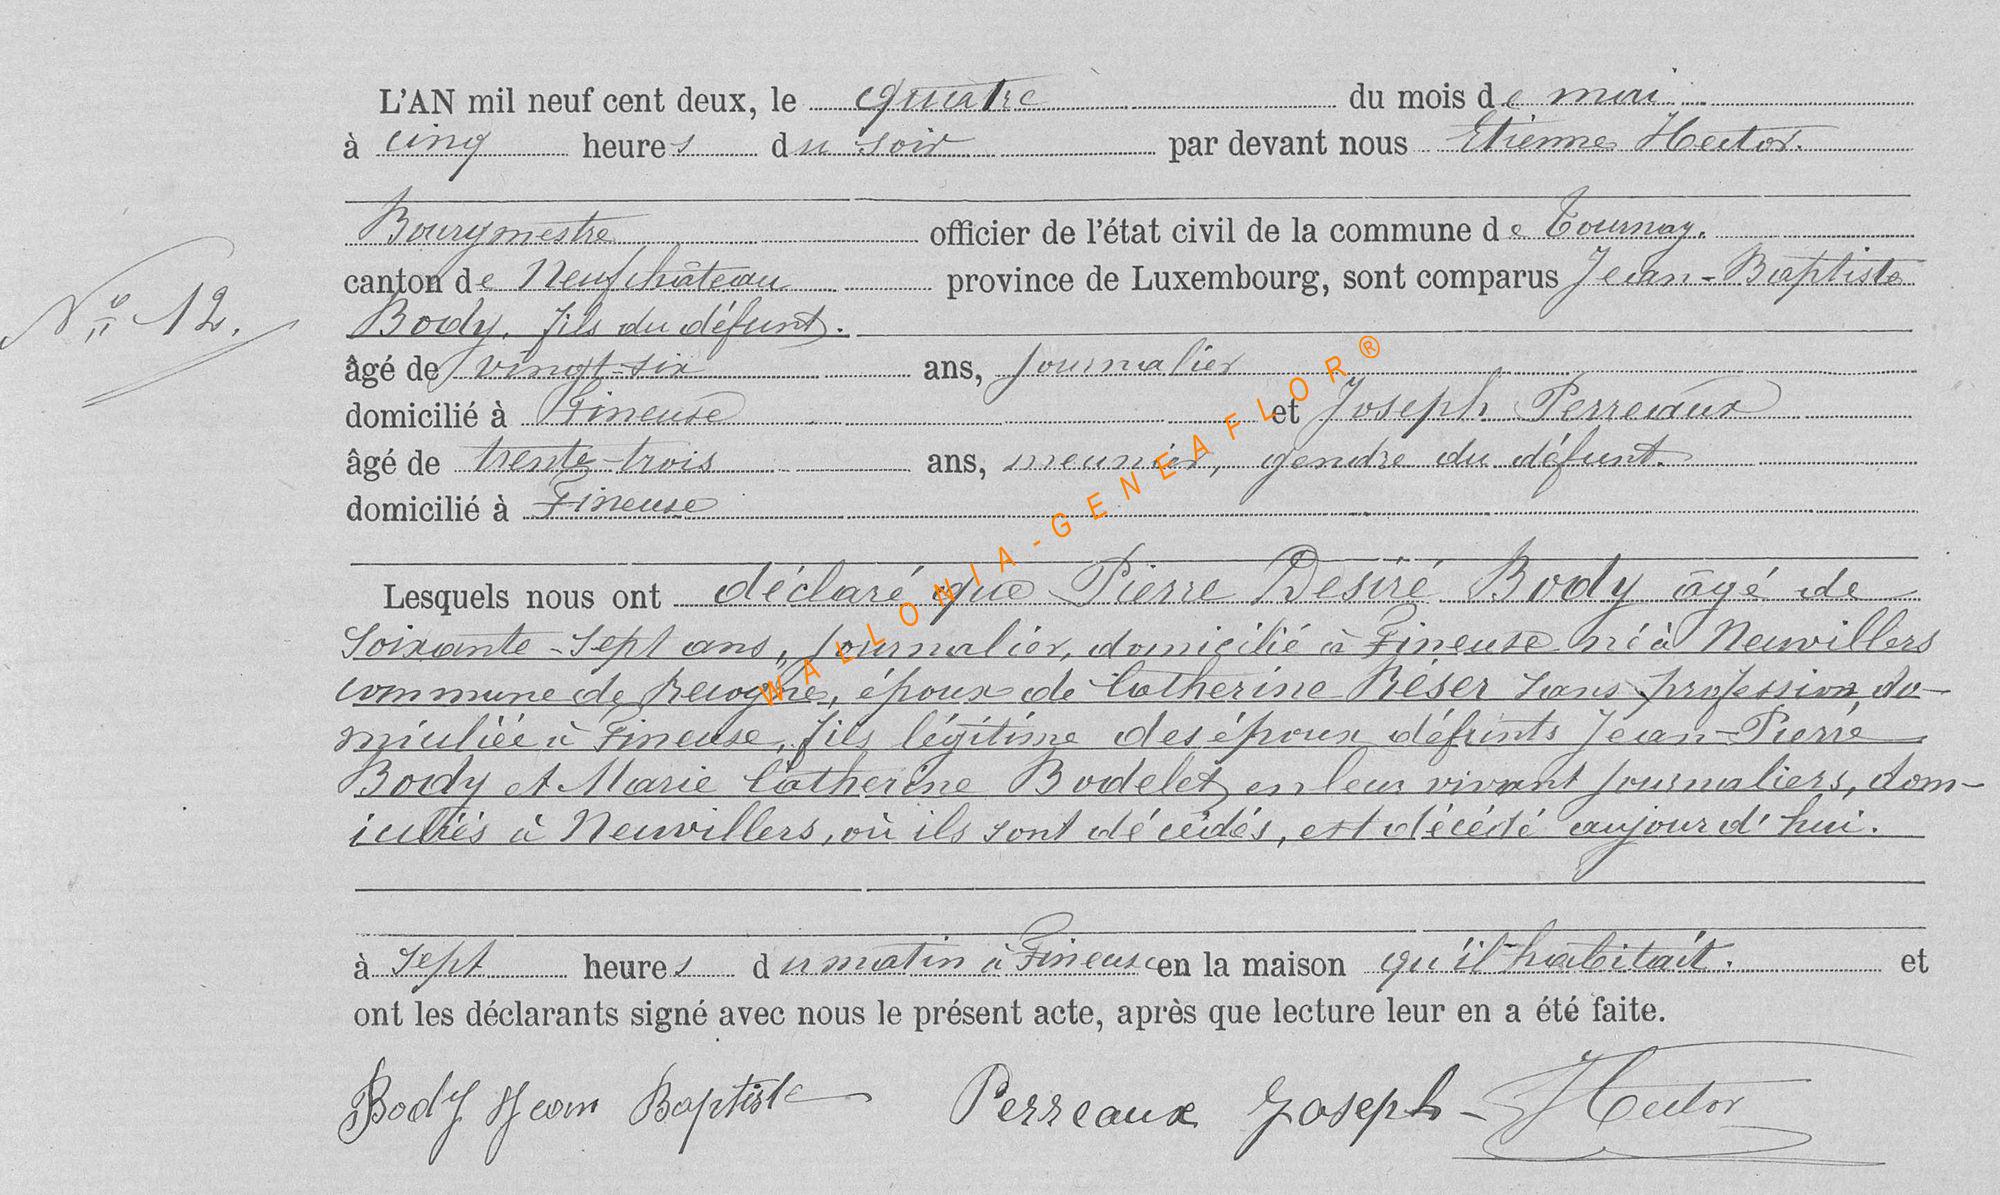 L'AN mil neuf cent deux, le quatre du mois de mai
à cinq heures du soir par devant nous Etienne Hector.
Bourgmestre officier de l'état civil de la commune de Tournay.
N° 12.
canton de Neufchâteau province de Luxembourg, sont comparus Jean-Baptiste
Body, fils du défunt.
âgé de vingt-six ans, journalier
domicilié à Fineuse et Joseph Perreaux
âgé de trente-trois ans, meunier, gendre du défunt.
domicilié à Fineuse
Lesquels nous ont déclaré que Pierre Desiré Body âgé de
soixante-sept ans, journalier, domicilié à Fineuse né à Neuvillers
commune de Recogne, époux de Catherine Réser sans profession, do-
miciliée à Fineuse, fils légitime des époux défunts Jean-Pierre
Body et Marie Catherine Bodelet en leur vivant journaliers, dom-
iciliés à Neuvillers, où ils sont décédés, est décédé aujourd'hui.
à sept heures du matin à Fineuse en la maison qu'il habitait. et
ont les déclarants signé avec nous le présent acte, après que lecture leur en a été faite.
Body Jean Baptiste Perreaux Joseph - Hector
WALLONIA-GENEAFLOR®